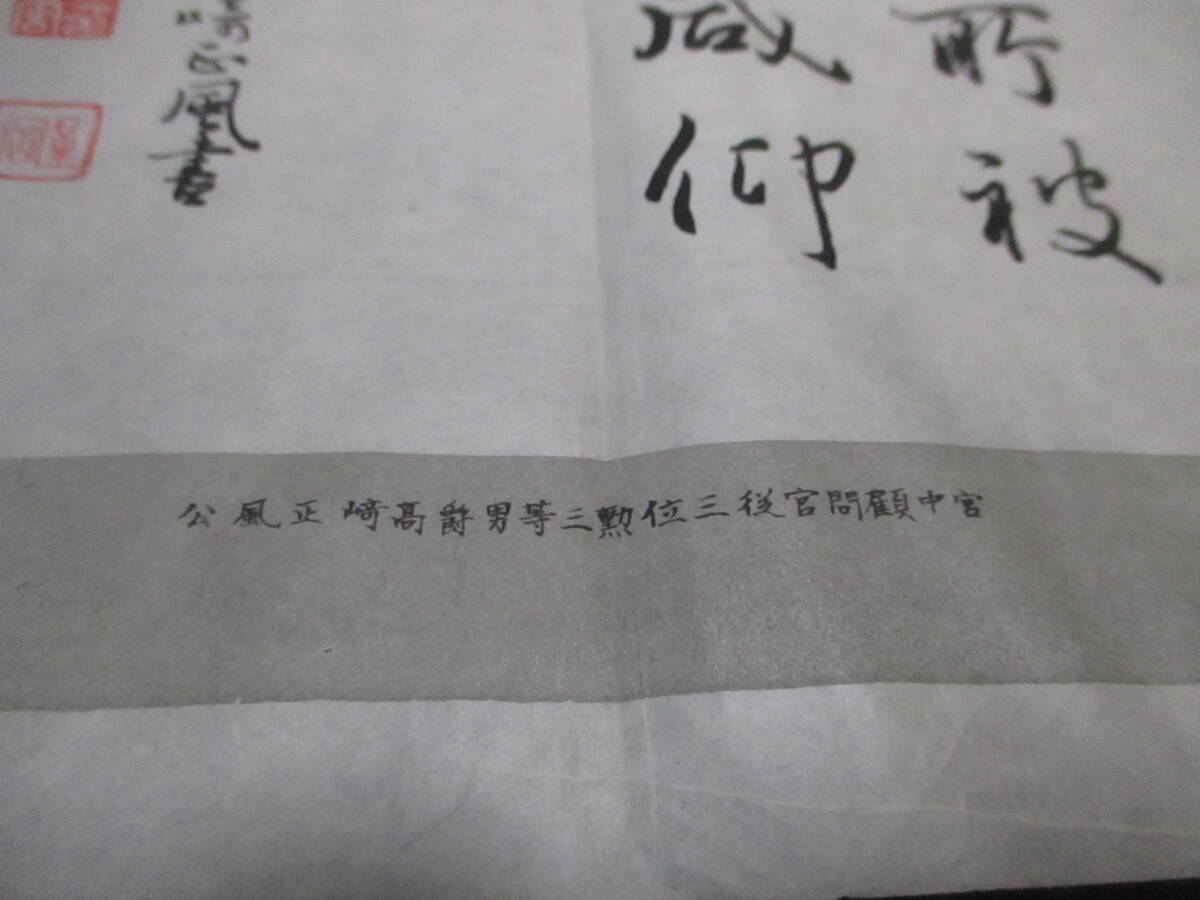 所被
咸仰
正風書
宮中顧問官従三位三等勲男爵高崎正風公